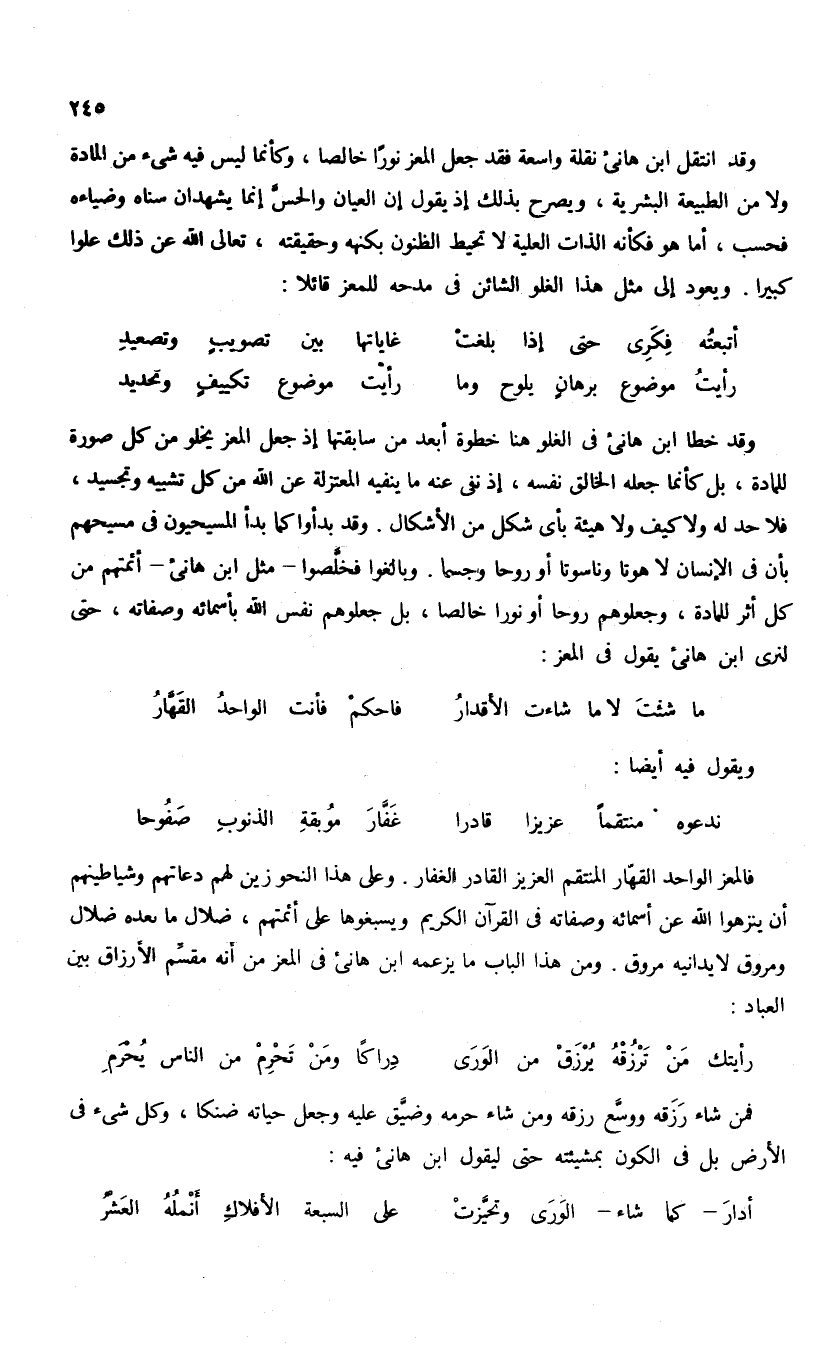 ٢٤٥
وقد انتقل ابن هانئ نقلة واسعة فقد جعل المعز نورًا خالصا ، وكأنما ليس فيه شىء من المادة
ولا من الطبيعة البشرية ، ويصرح بذلك إذ يقول إن العيان والحسَّ إنما يشهدان سناه وضياءه
فحسب ، أما هو فكأنه الذات العلية لا تحيط الظنون بكنهه وحقيقته ، تعالى الله عن ذلك علوا
كبيرا . ويعود إلى مثل هذا الغلو الشائن فى مدحه للمعز قائلا :
أتبعتُه فِكَرِى حتى إذا بلغتْ غاياتها بين تصويبٍ وتصعيدِ
رأيتُ موضوع برهانٍ يلوح وما رأيْت موضوع تكييفٍ وتحديد
وقد خطا ابن هانئ فى الغلو هنا خطوة أبعد من سابقتها إذ جعل المعز يخلو من كل صورة
للمادة ، بل كأنما جعله الخالق نفسه ، إذ نفى عنه ما ينفيه المعتزلة عن الله من كل تشبيه وتجسيد ،
فلا حد له ولا كيف ولا هيئة بأى شكل من الأشكال . وقد بدأوا كما بدأ المسيحيون فى مسيحهم
بأن فى الإنسان لاهوتا وناسوتا أو روحا وجسما . وبالغوا فخلَّصوا – مثل ابن هانئ – أئمتهم من
كل أثر للمادة ، وجعلوهم روحا أو نورا خالصا ، بل جعلوهم نفس الله بأسمائه وصفاته ، حتى
لنرى ابن هانئ يقول فى المعز :
ما شئتَ لا ما شاءت الأقدارُ فاحكمْ فأنت الواحدُ القَهَّارُ
ويقول فيه أيضا :
ندعوه منتقماً عزيزا قادرا غَفَّارَ مُوبقةِ الذنوبِ صَفُوحا
فالمعز الواحد القهّار المنتقم العزيز القادر الغفار . وعلى هذا النحو زين لهم دعاتهم وشياطينهم
أن ينزهوا الله عن أسمائه وصفاته فى القرآن الكريم ويسبغوها على أئمتهم ، ضلال ما بعده ضلال
ومروق لايدانيه مروق . ومن هذا الباب ما يزعمه ابن هانئ فى المعز من أنه مقسِّم الأرزاق بين
العباد :
رأيتك مَنْ تَرْزُقْهُ يُرْزَقْ من الوَرَى دِراكًا ومَنْ تَحْرِمْ من الناس يُحْرَمِ
فمن شاء رَزَقه ووسَّع رزقه ومن شاء حرمه وضيَّق عليه وجعل حياته ضنكا ، وكل شىء فى
الأرض بل فى الكون بمشيئته حتى ليقول ابن هانئ فيه :
أدارَ – كما شاء – الوَرَى وتحيَّزتْ على السبعة الأفلاكِ أَنْملُهُ العَشْرُ